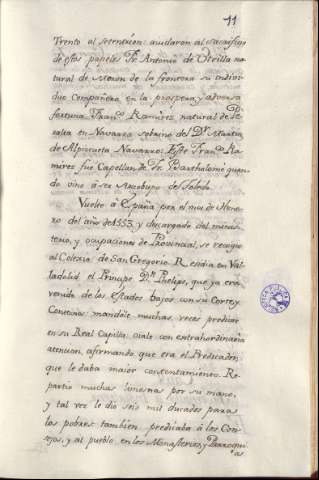 11
Trento al setentrion: ayudaron al sacrificio
de estos papeles Fr. Antonio de Utrilla na-
tural de Moron de la frontera su indivi-
duo Compañero en la prospera y adversa
fortuna. Franco. Ramirez natural de Pe-
ralta en Navarra sobrino del Dr. Martin
de Alpizcueta Navarro: Este Franco. Ra-
mirez fue Capellan de Fr. Bartholome quan-
do vino á ser Arzobispo de Toledo.
Vuelto á España por el mes de Hene-
ro del año de 1553 y descargado del minis-
terio, y ocupaciones de Provincial, se recogio
al Colegio de San Gregorio. Residia en Val-
ladolid el Principe Dn. Phelipe, que ya era
venido de los estados bajos con su Corte y
Consejos: mandóle muchas veces predicar
en su Real Capilla: oiale con extrahordinaria
atencion, afirmando que era el Predicador
que le daba maior contentamiento. Re-
partio muchas limosnas por su mano,
y tal vez le dio seis mil ducados para
los pobres: tambien predicaba á los Con-
sejos, y al pueblo, en los Monasterios, y Parroqui-
as